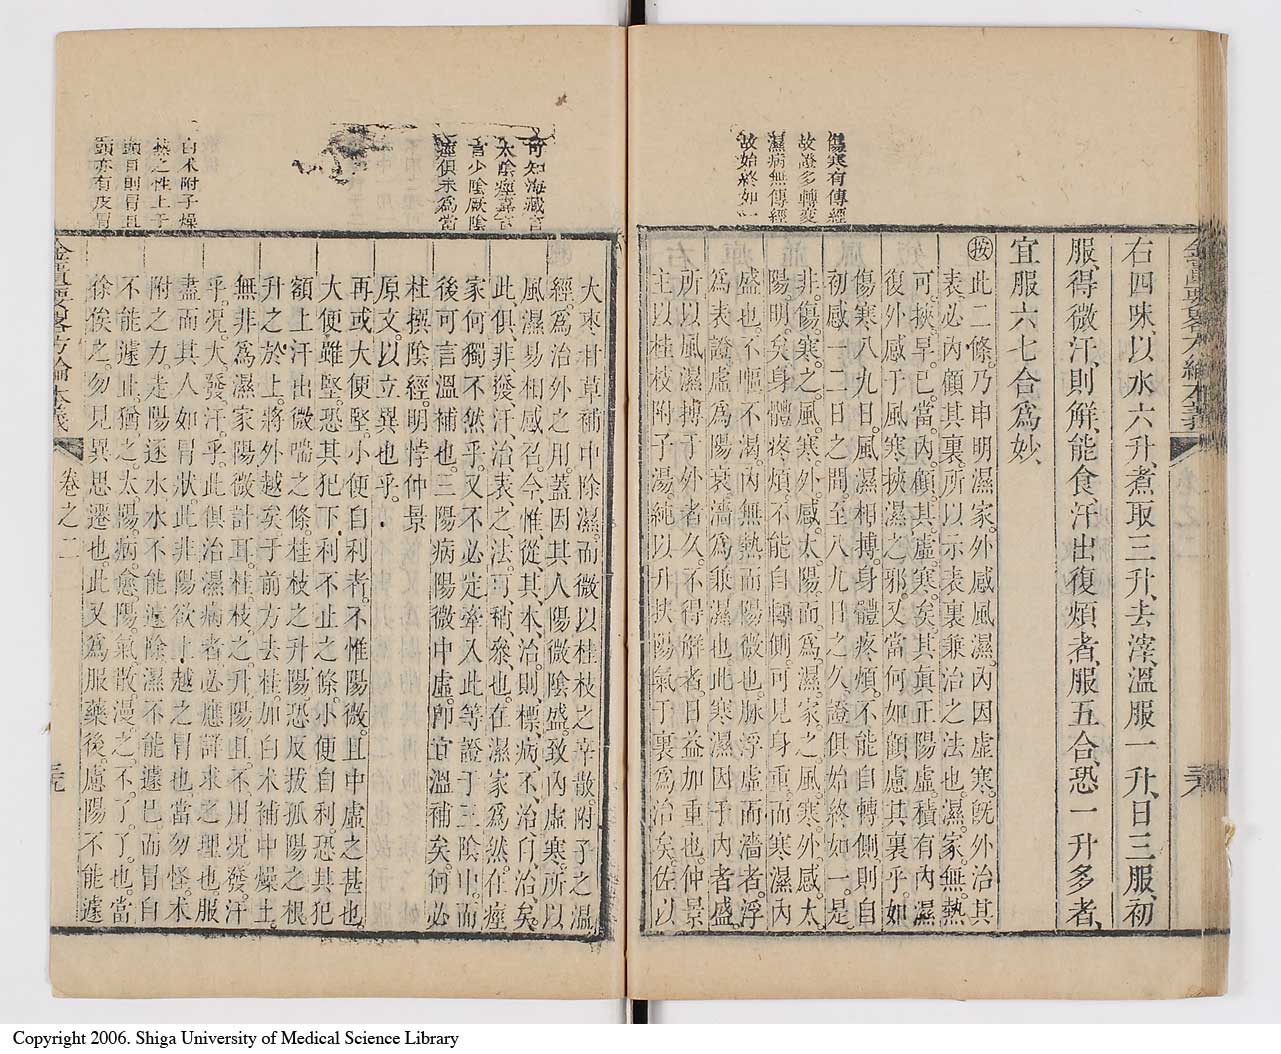 傷寒有傳經
故證多轉變
濕病無傳經
故始終如一
右四味、以水六升、煮取三升、去滓、溫服一升、日三服、初
服、得微汗、則解、能食、汗出復煩者、服五合、恐一升多者、
宜服六七合爲妙、
按此二條乃申明濕家外感風濕、內因虛寒、旣外治其
表、必內顧其裏、所以示表裏兼治之法也。濕家無熱
可挾、早已當內顧其虛寒矣。其眞正陽虛積有內濕
復外感于風寒挾濕之邪、又當何如顧慮其裏乎。如
傷寒八九日、風濕相搏、身體疼煩、不能自轉側、則自
初感一二日之間、至八九日之久、證俱始終如一、是
非傷寒之風寒外感太陽、而爲濕家之風寒外感太
陽明矣。身體疼煩、不能自轉側、可見身重、而寒濕內
盛也。不嘔不渴、內無熱而陽微也。脉浮虛而濇者、浮
爲表證、虛爲陽衰、濇爲兼濕也。此寒濕因于內者盛、
所以風濕搏于外者久、不得解者日益加重也。仲景
主以桂枝附子湯、純以升挾陽氣于裏爲治矣。佐以
卷之二
可知海藏言
太陰痙、嘉言
言少陰厥陰
痙俱未爲當
白朮附子燥
熱之性上于
頭目則冒且
頭亦有皮冒
大棗甘草補中除濕、而微以桂枝之辛散、附子之溫
經、爲治外之用、蓋因其人陽微陰盛、致內虛寒、所以
風濕易相感召、今惟從其本治、則標病不治自治矣。
此俱非發汗治表之法、可稍參也。在濕家爲然、在痙
家何獨不然乎。又不必定牽入此等證于三陰中、而
後可言溫補也。三陽病陽微中虛、卽宜溫補矣。何必
杜撰陰經、明悖仲景
原文以立異也乎。
再或大便堅、小便自利者、不惟陽微、且中虛之甚也
大便雖堅、恐其犯下利不止之條、小便自利、恐其犯
額上汗出微喘之條、桂枝之升陽、恐反拔孤陽之根
升之於上、將外越矣。于前方去桂加白朮補中燥土
無非爲濕家陽微計耳。桂枝之升陽、且不用、况發汗
乎。况大發汗乎。此俱治濕病者必應詳求之理也。服
盡而其人如冒狀、此非陽欲上越之冒也。當勿怪。朮
附之力、走陽逐水、水不能遽除、濕不能遽已、而冒自
不能遽止、猶之太陽病愈、陽氣散漫之不了了也。當
徐俟之、勿見異思遷也。此又爲服藥後慮陽不能遽
金匱要略方論本義
卷之二
Copyright 2006. Shiga University of Medical Science Library